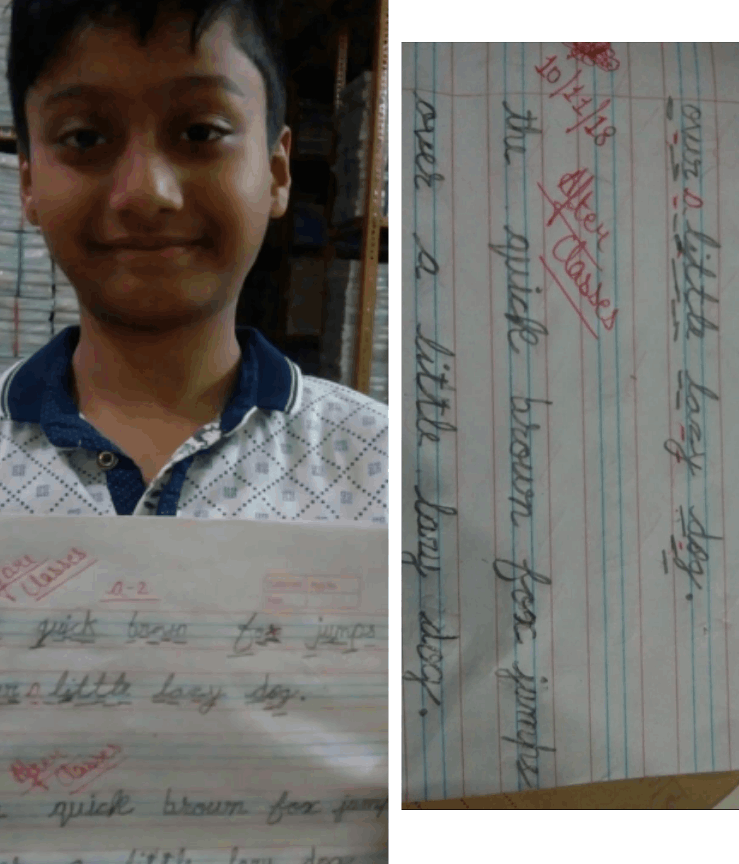 Classes
n-2
quick brown fox jumps
a little lazy dog.
After
Classes
quick brown fox jump
a little lazy dog
over a little lazy dog.
10/11/18
After
Classes
the quick brown fox jumps
over a little lazy dog.